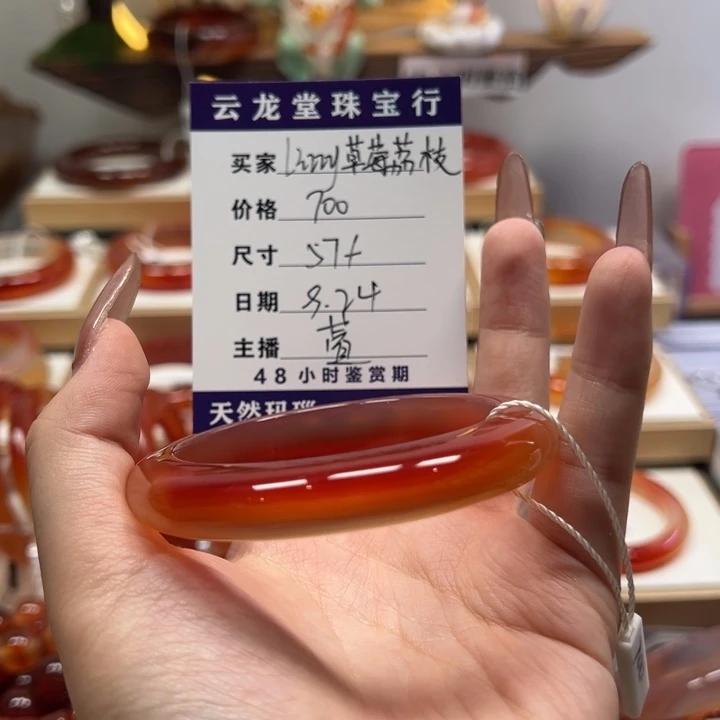 云龙堂珠宝行
买家 Lizzy草莓荔枝
价格 700
尺寸 57+
日期 9.24
主播
48小时鉴赏期
天然玛瑙